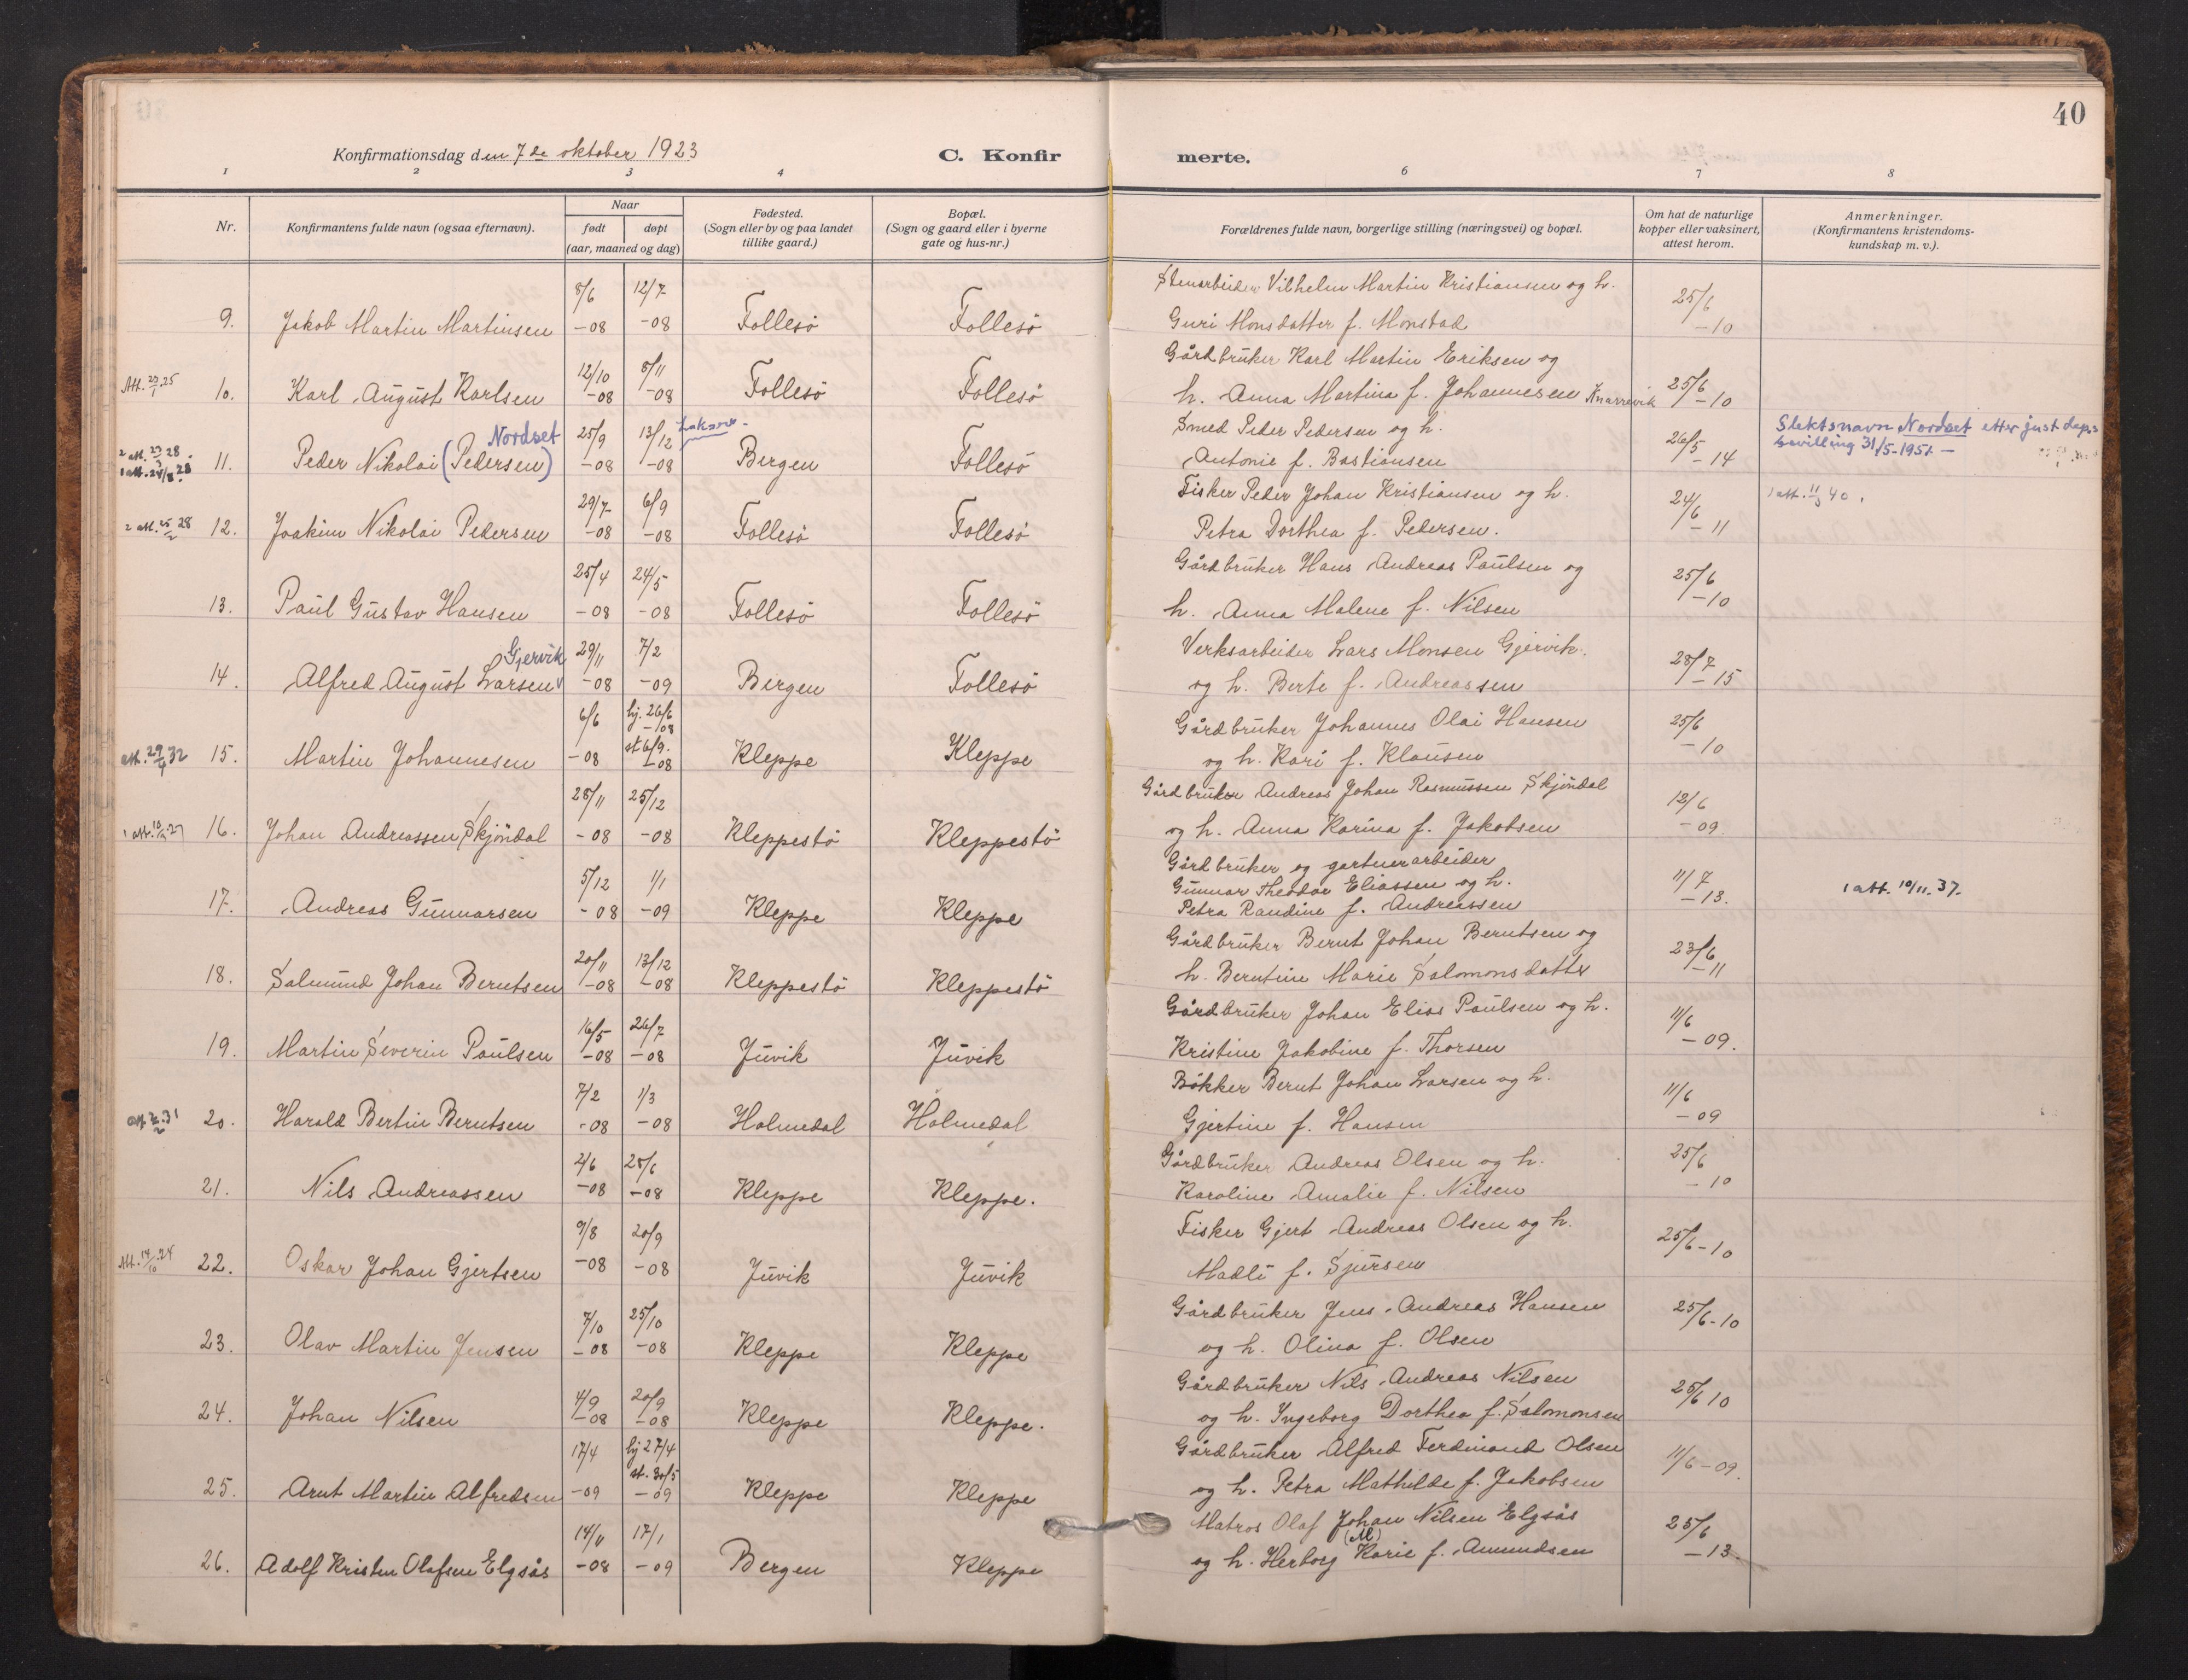 40
Konfirmationsdag den 7de oktober 1923 C. Konfir merte.
1 2 3 4 6 7 8
Nr. Konfirmantens fulde navn (ogsaa efternavn). Naar født døpt (aar, maaned og dag) Fødested. (Sogn eller by og paa landet tillike gaard.) Bopæl. (Sogn og gaard eller i byerne gate og hus-nr.) Forældrenes fulde navn, borgerlige stilling (næringsvei) og bopæl. Om hat de naturlige kopper eller vaksinert, attest herom. Anmerkninger. (Konfirmantens kristendoms-kundskap m. v.).
9. Jakob Martin Martinsen 8/6 -08 12/7 -08 Follesö Follesö Stenarbeider Vilhelm Martin Kristiansen og h. 25/6 -10
Guri Monsdatter f. Monstad
Att. 25 10. Karl August Karlsen 12/10 -08 8/11 -08 Follesö Follesö Gårdbruker Karl Martin Eriksen og 25/6 -10
h. Anna Martina f. Johannesen Knarrevik
2 att. 28 1 att. 28 11. Peder Nikolai (Pedersen) Nordset 25/9 -08 13/12 -08 Bergen Follesö Smed Peder Pedersen og h. 26/5 -14 Slektsnavn Nordset etter just. deps
Antonie f. Bastiansen bevilling 31/5-1951 -
2 att. 28 12. Joakim Nikolai Pedersen 29/7 -08 6/9 -08 Follesö Follesö Fisker Peder Johan Kristiansen og h. 24/6 -11 1 att. 40.
Petra Dorthea f. Pedersen.
13. Paul Gustav Hansen 25/4 -08 24/5 -08 Follesö Follesö Gårdbruker Hans Andreas Paulsen og 25/6 -10
h. Anna Malene f. Nilsen
14. Alfred August Larsen Gjervik 29/11 -08 7/2 -09 Bergen Follesö Verksarbeider Lars Monsen Gjervik. 28/7 -15
og h. Berte f. Andreassen
att. 29/4 32 15. Martin Johannesen 6/6 -08 hj. 26/6 -08 st 6/9. -08 Kleppe Kleppe Gårdbruker Johannes Olai Hansen 25/6 -10
og h. Kari f. Klausen
1 att. 27 16. Johan Andreassen Skjöndal 28/11 -08 25/12 -08 Kleppestö Kleppestö Gårdbruker Andreas Johan Rasmussen Skjöndal 12/6 -09.
og h. Anna Karina f. Jakobsen
17. Andreas Gunnarsen 5/12 -08 1/1 -09 Kleppe Kleppe Gårdbruker og gartnerarbeider 11/7 -13. 1 att. 10/11. 37.
Gunnar Theodor Eliassen og h.
Petra Randine f. Andreassen
18. Salmund Johan Berntsen 20/11 -08 13/12 -08 Kleppestö Kleppestö Gårdbruker Bernt Johan Berntsen og 23/6 -11
h. Berntine Marie Salomonsdatter
19. Martin Severin Paulsen 16/5 -08 26/7 -08 Juvik Juvik Gårdbruker Johan Elias Paulsen og h. 11/6 -09.
Kristine Jakobine f. Thorsen
att. 31 20. Harald Bertin Berntsen 7/2 -08 1/3 -08 Holmedal Holmedal Bökker Bernt Johan Larsen og h. 11/6 -09
Gjertine f. Hansen
21. Nils Andreassen 2/6 -08 28/6 -08 Kleppe Kleppe. Gårdbruker Andreas Olsen og h. 25/6 -10
Karoline Amalie f. Nilsen
Att. 14/10 24 22. Oskar Johan Gjertsen 9/8 -08 20/9 -08 Juvik Juvik Fisker Gjert Andreas Olsen og h. 25/6-10
Madli f. Sjursen
23. Olav Martin Jensen 7/10 -08 25/10 -08 Kleppe Kleppe Gårdbruker Jens Andreas Hansen 25/6-10
og h. Olina f. Olsen
24. Johan Nilsen 4/9 -08 20/9 -08 Kleppe Kleppe. Gårdbruker Nils Andreas Nilsen 25/6 10
og h. Ingeborg Dorthea f. Salomonsen
25. Arnt Martin Alfredsen 17/4 -09 hj 27/4 st. 30/5 -09 Kleppe Kleppe Gårdbruker Alfred Ferdinand Olsen 11/6-09.
og h. Petra Mathilde f. Jakobsen
26. Adolf Kristen Olafsen Elgsås 14/11 -08 17/1 -09 Bergen Kleppe Matros Olaf Johan Nilsen Elgsås 25/6 -13.
og h. Herborg (M) Karie f. Amundsen